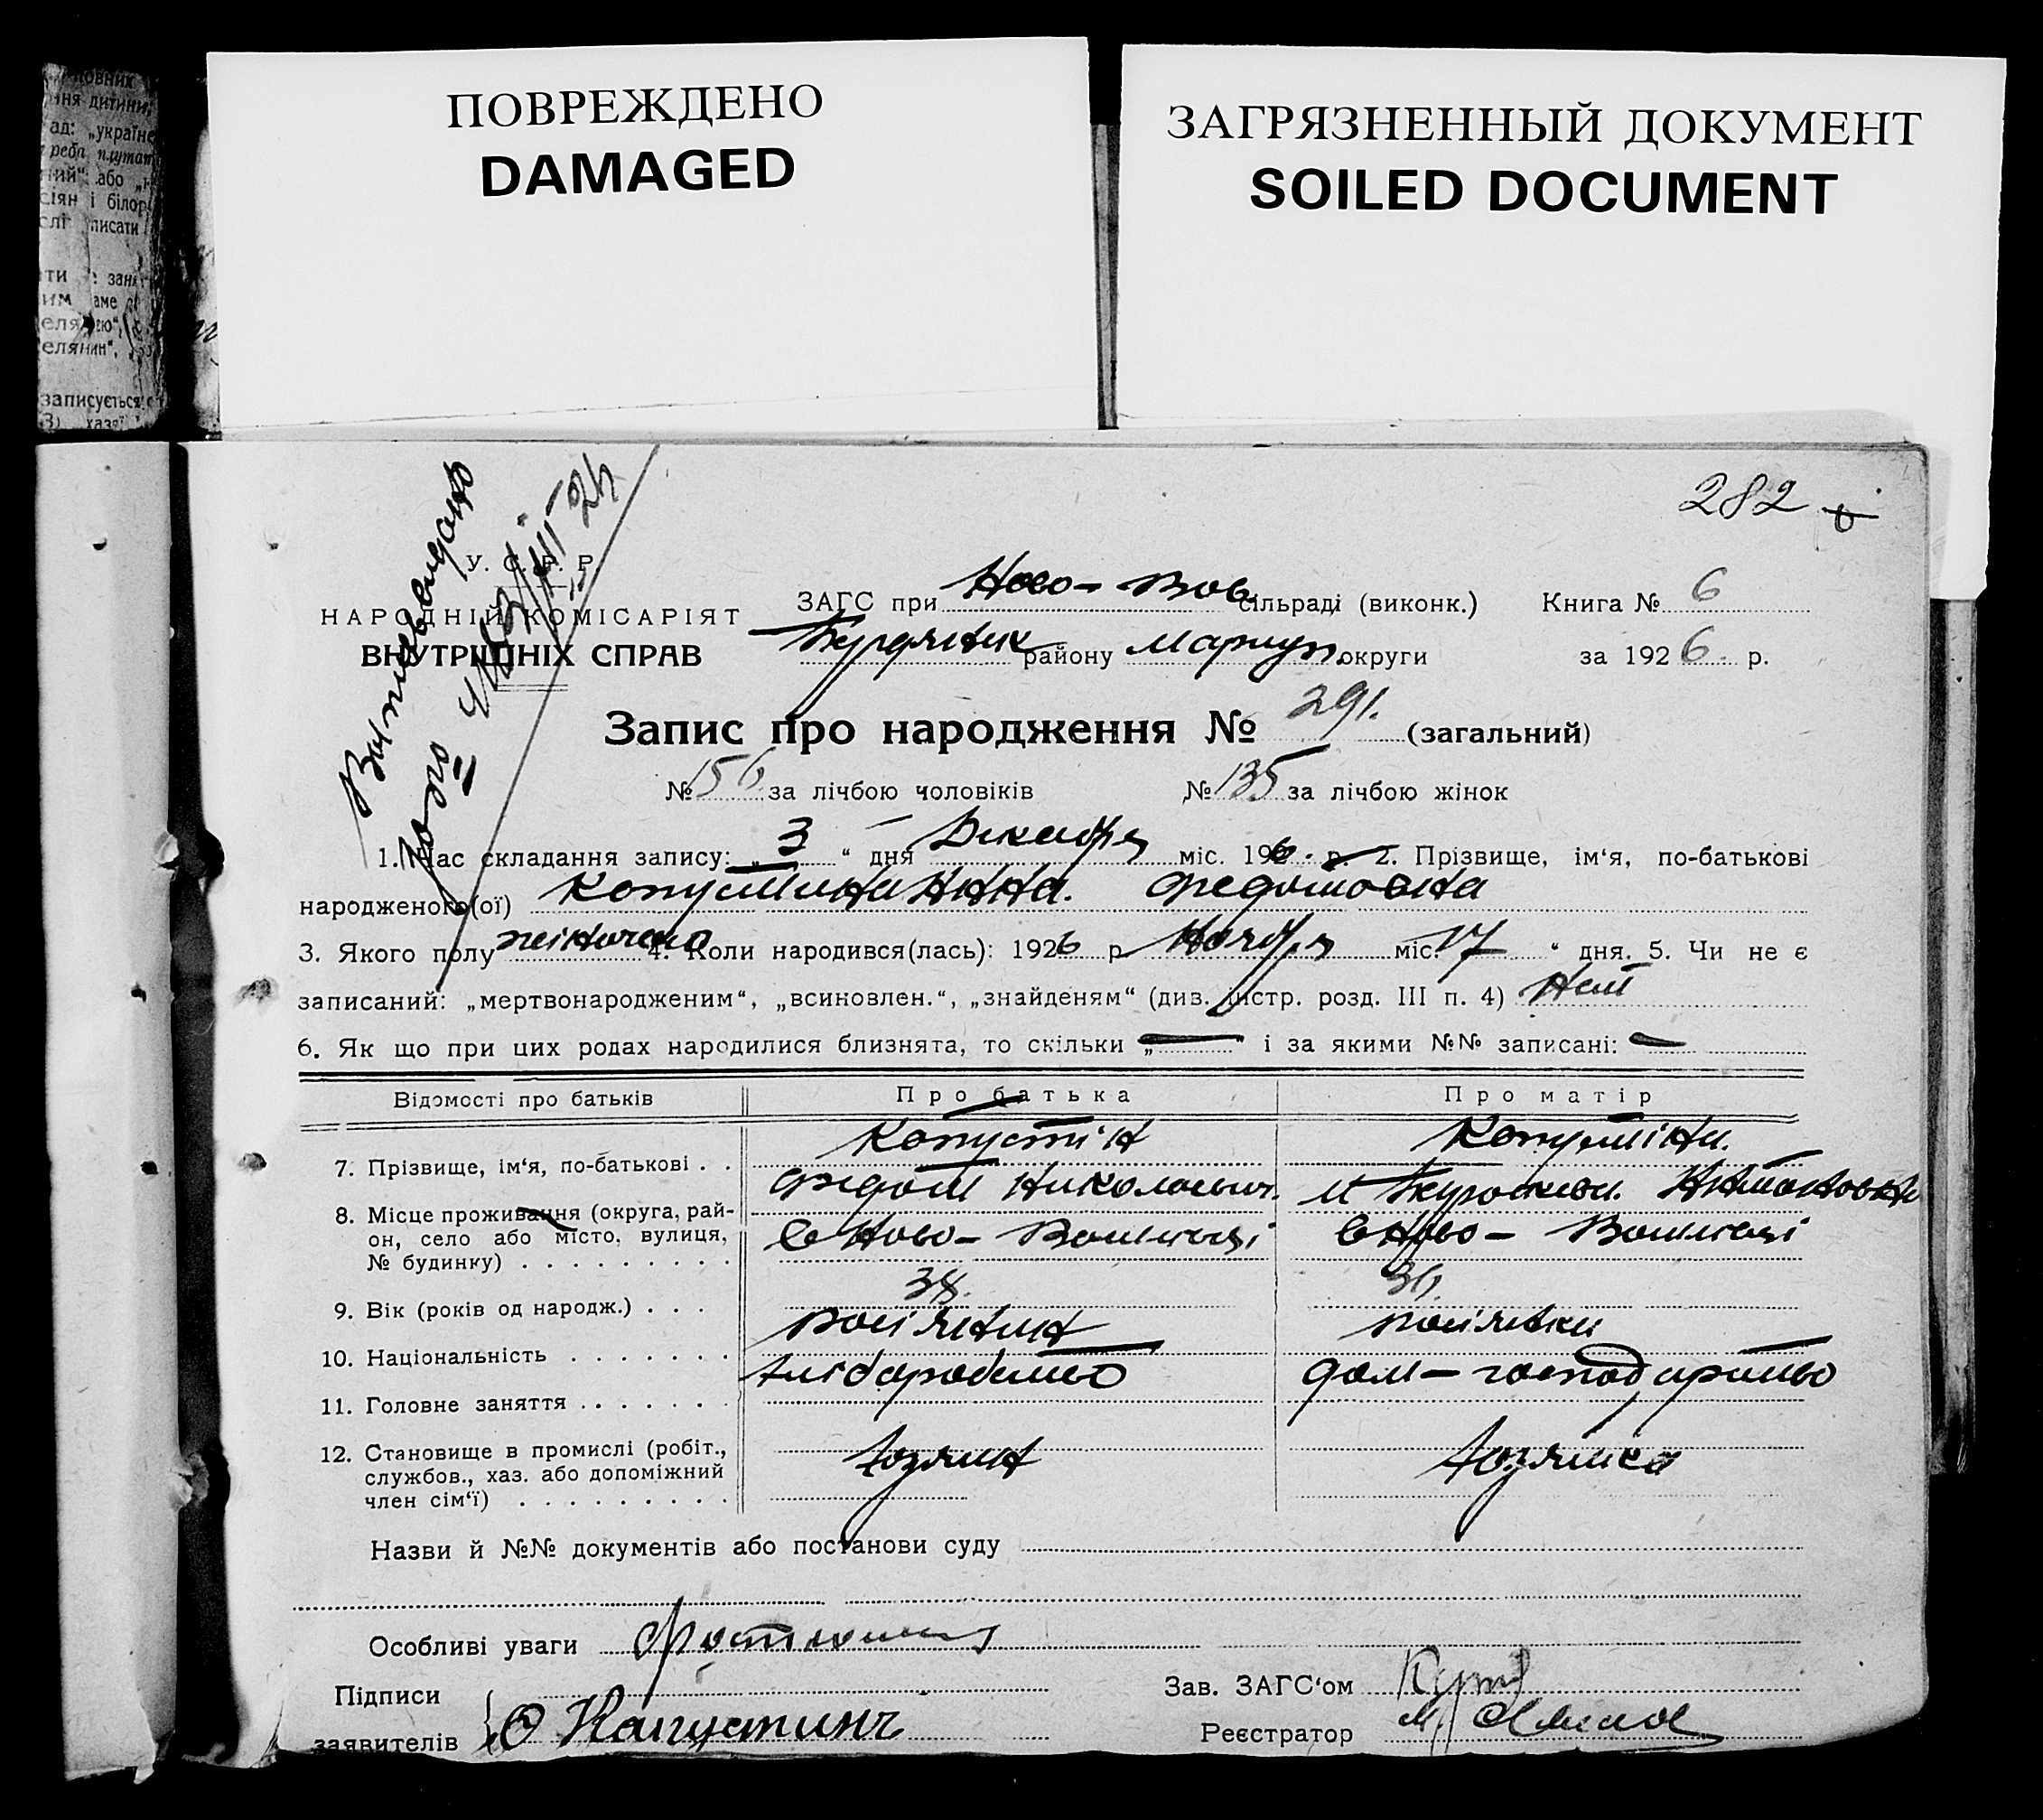 овних
ння дитини,
ад: „україне
реба плутат
ний“ або „
сіян і білор
слі писати
ти зан
им аме
еля ею“,
елянин“,
записується
3) хазя
ПОВРЕЖДЕНО
DAMAGED
ЗАГРЯЗНЕННЫЙ ДОКУМЕНТ
SOILED DOCUMENT
282
У. С. Р. Р.
НАРОДНІЙ КОМІСАРІЯТ
ВНУТРІШНІХ СПРАВ
ЗАГС при Ново- Вов. сільраді (виконк.) Книга № 6
району Мариуп. округи за 1926. р.
Запис про народження № 291. (загальний)
№ 156 за лічбою чоловіків № 135 за лічбою жінок
1. Час складання запису: „3“ дня Декабря міс. 1926. р. 2. Прізвище, ім‘я, по-батькові
народженого(ої) Копустина Анна. Федотовна
3. Якого полу жіночого 4. Коли народився(лась): 1926 р. Ноября міс. 17 “ дня. 5. Чи не є
записаний: „мертвонародженим“, „всиновлен.“, „знайденям“ (див. інстр. розд. III п. 4) Нет
6. Як що при цих родах народилися близнята, то скільки „—“ і за якими №№ записані: —
Відомості про батьків Про батька Про матір
Копустін Копустіна.
7. Прізвище, ім‘я, по-батькові . .
Федот Николаевич.
8. Місце проживання (округа, рай-
он, село або місто, вулиця,
№ будинку) . . . . . . . . .
с Ново- с Ново-
38. 36.
9. Вік (років од народж.) . . .
росіянин росіянка
10. Національність . . . . . . .
хліборобство дом- господарство
11. Головне заняття . . . . . . .
12. Становище в промислі (робіт.,
службов., хаз. або допоміжний
член сім‘ї) . . . . . . . . .
хозяин хозяйка
Назви й №№ документів або постанови суду
Особливі уваги
Підписи
заявителів Ф Капустинъ
Зав. ЗАГС‘ом
Реєстратор